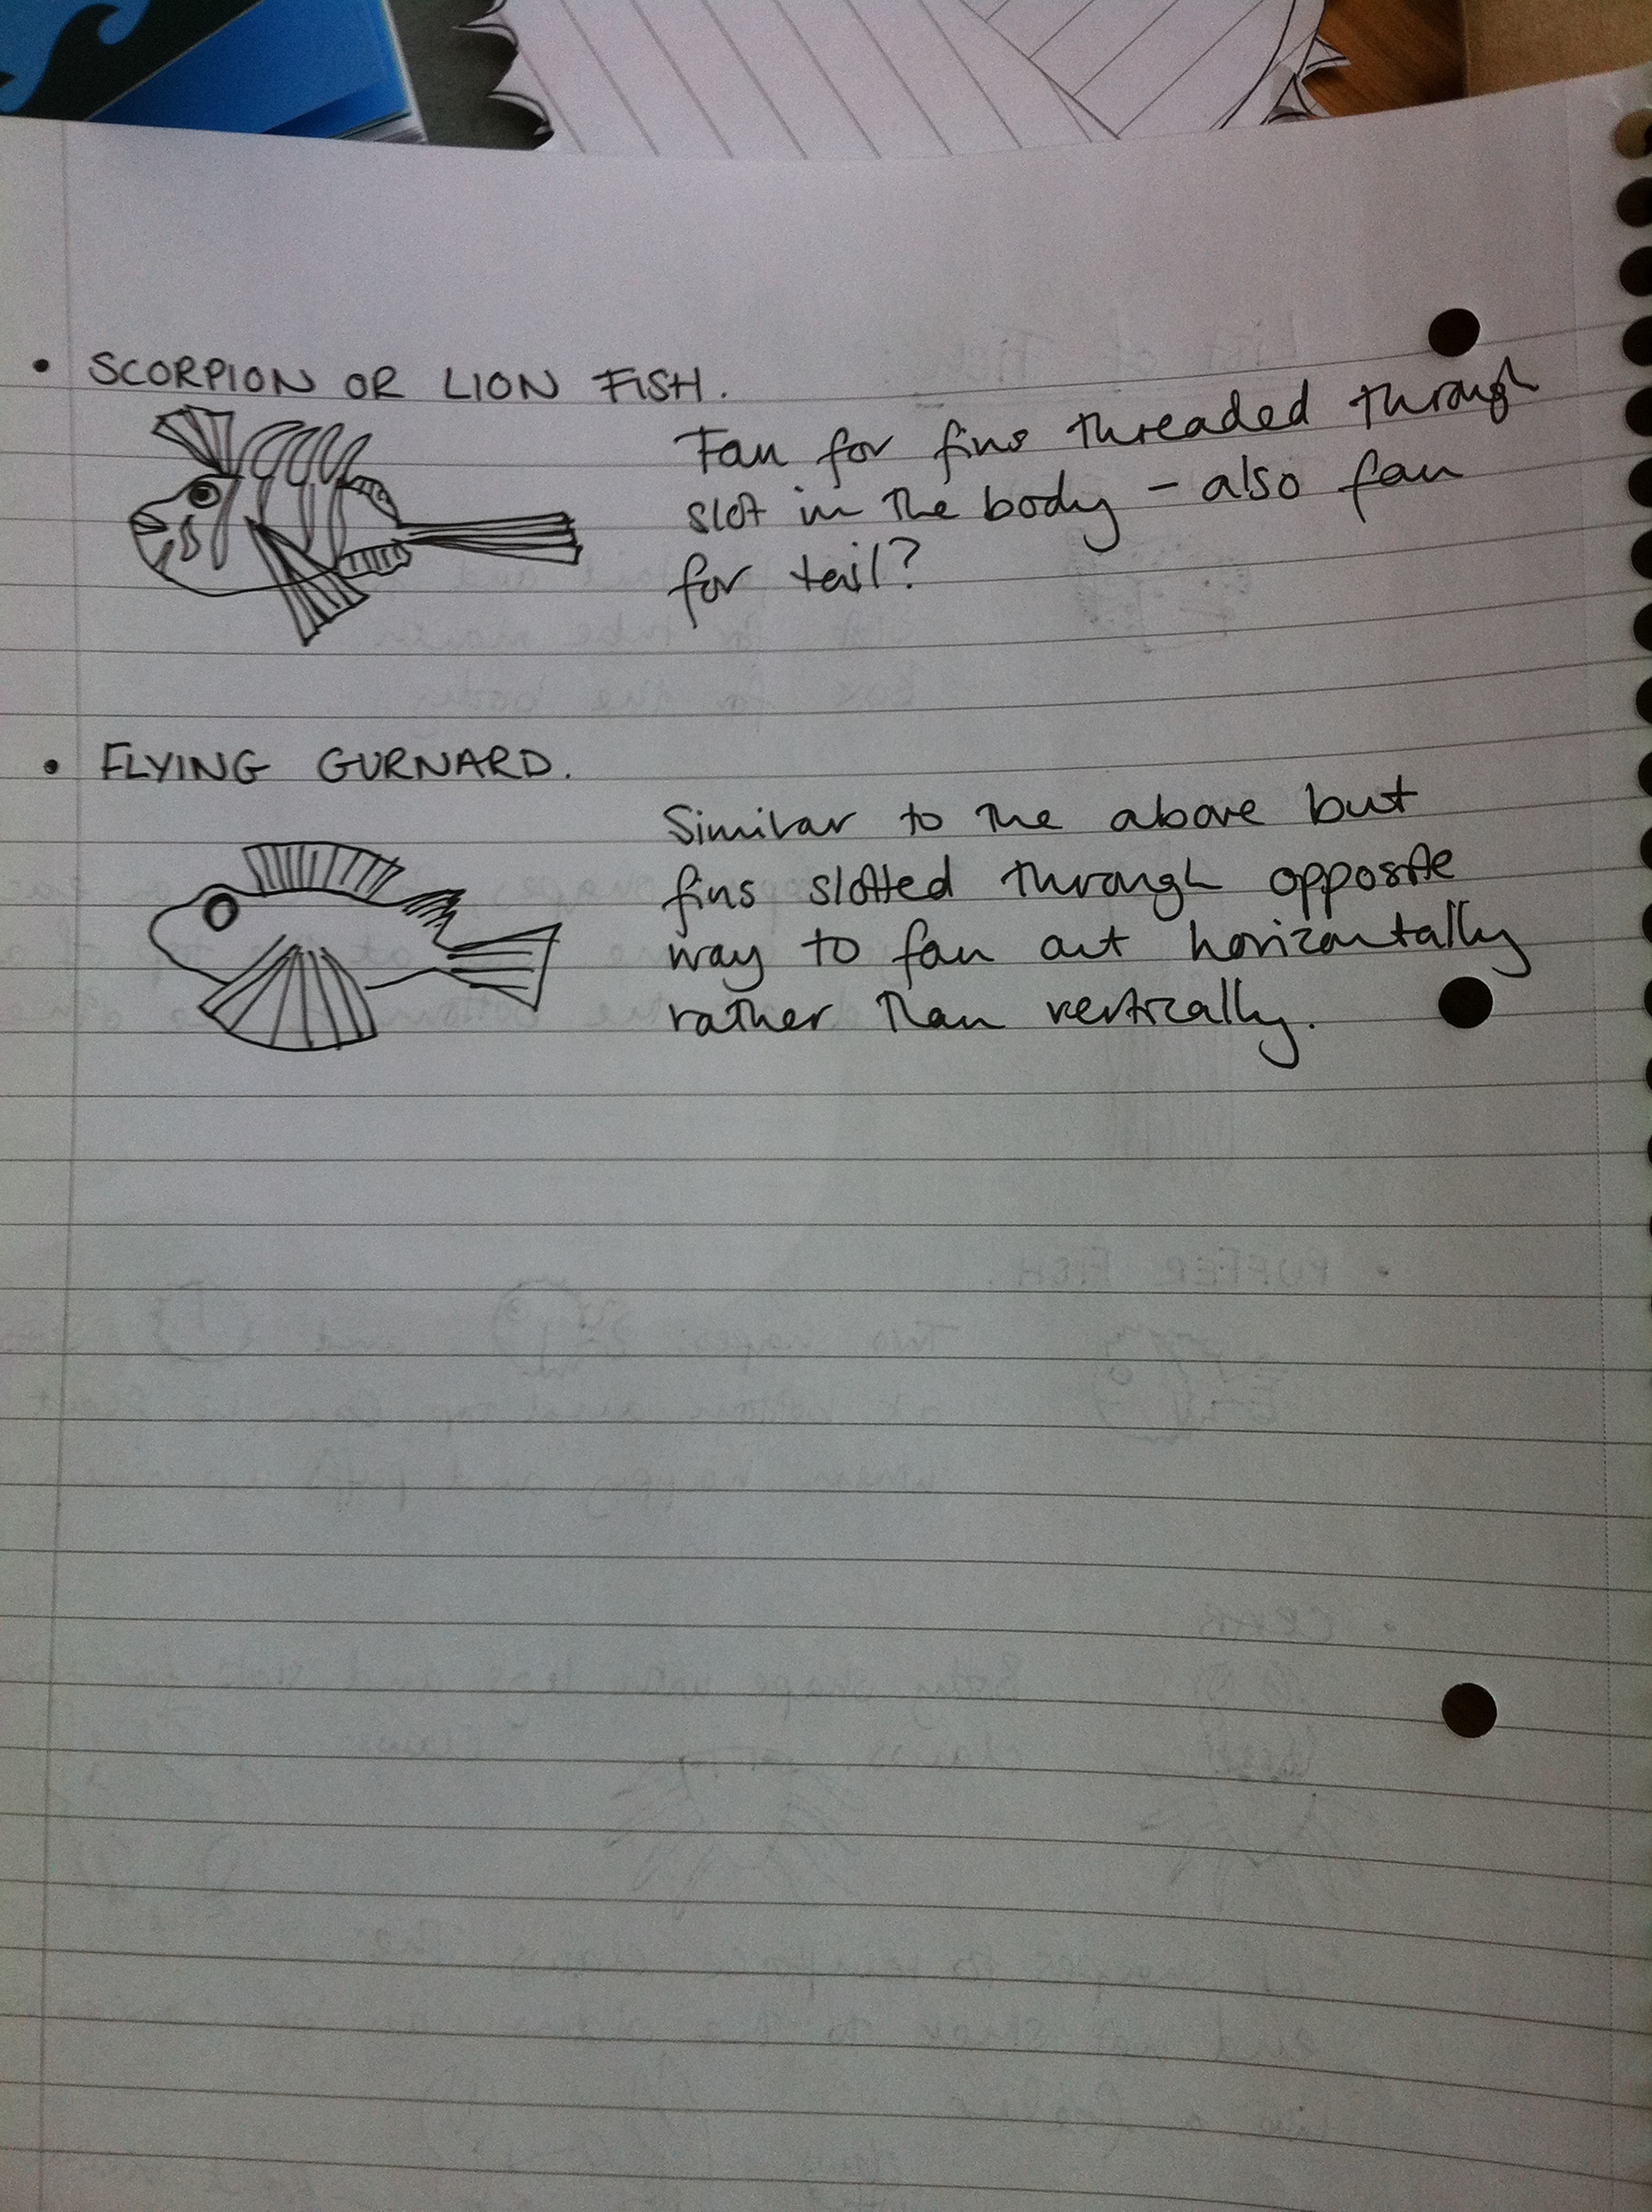 • SCORPION OR LION FISH.
Fan for fins threaded through
slot in the body - also fan
for tail?
• FLYING GURNARD.
Similar to the above but
fins slotted through opposite
way to fan out horizontally
rather than vertically.